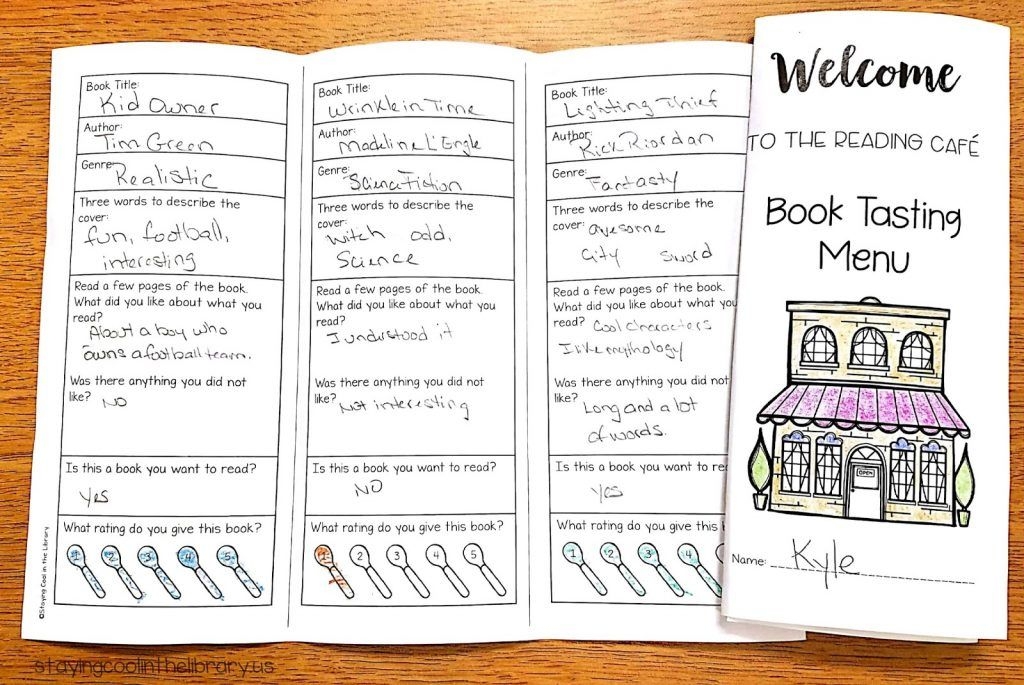 Book Title:
Kid Owner
Author:
Tim Green
Genre:
Realistic
Three words to describe the
cover:
fun, football,
interesting
Read a few pages of the book.
What did you like about what you
read?
About a boy who
owns a football team.
Was there anything you did not
like? NO
Is this a book you want to read?
yes
What rating do you give this book?
1 2 3 4 5
©Staying Cool in the Library
Book Title:
Wrinkle in Time
Author:
Madeline L'Engle
Genre:
Science Fiction
Three words to describe the
cover:
witch odd,
Science
Read a few pages of the book.
What did you like about what you
read?
I understood it
Was there anything you did not
like? Not interesting
Is this a book you want to read?
NO
What rating do you give this book?
1 2 3 4 5
Book Title:
Lighting Thief
Author:
Rick Riordan
Genre:
Fantasty
Three words to describe the
cover: awesome
City Sword
Read a few pages of the book.
What did you like about what you
read? Cool characters
I like mythology
Was there anything you did not
like? Long and a lot
of words.
Is this a book you want to re
yes
What rating do you give this
1 2 3 4
Welcome
TO THE READING CAFÉ
Book Tasting
Menu
OPEN
Name: Kyle
stayingcoolinthelibrary.us